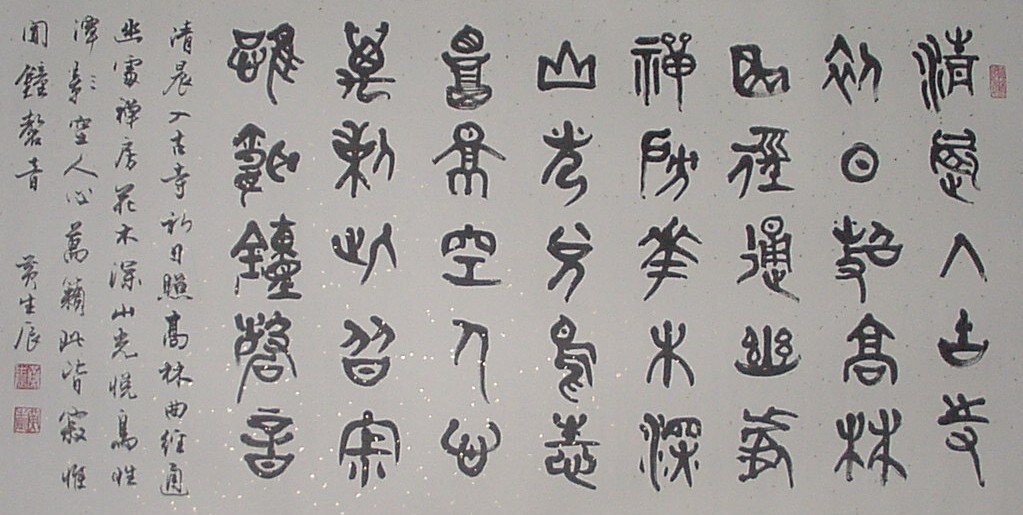 清晨入古寺
初日照高林
曲徑通幽處
禪房華木深
山光悅鳥性
潭影空人心
萬籟此皆寂
惟聞鐘磬音
清晨入古寺初日照高林曲徑通
幽處禪房花木深山光悅鳥性
潭影空人心萬籟此皆寂惟
聞鐘磬音 黃生辰